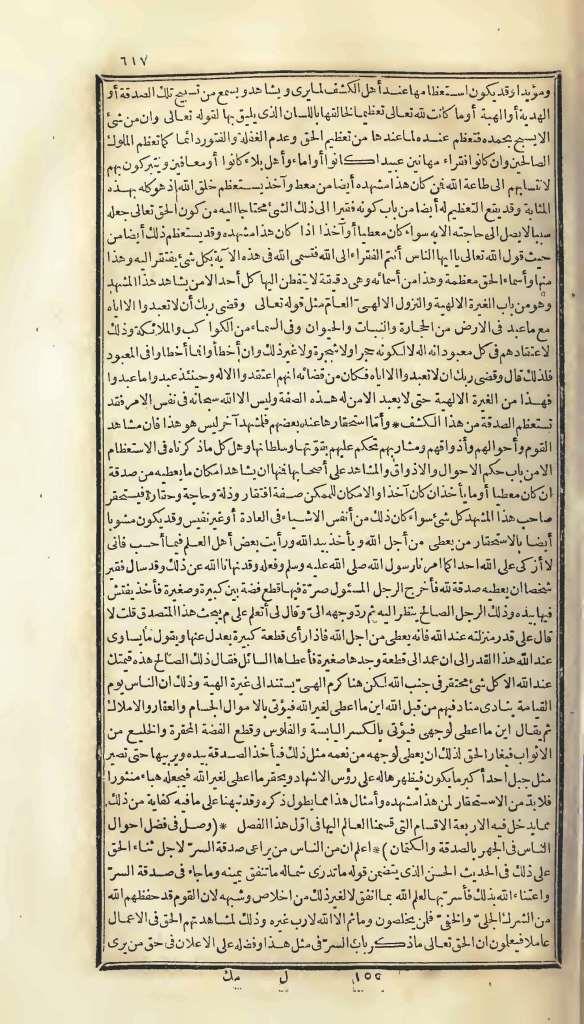 ٦١٧
ومؤيدا وقد يكون استعظامها عند أهل الكشف لما يرى ويشاهد ويسمع من تسبيح تلك الصدقة أو
الهدية أو الهبة أو ما كانت لله تعالى تعظيما لخالقها باللسان الذي يليق بها لقوله تعالى وان من شئ
الا يسبح بحمده فتعظم عنده لما عندها من تعظيم الحق وعدم الغفلة والفتور دائما كما تعظم الملوك
الصالحين وان كانوا فقراء مهانين عبيدا كانوا أو اماء وأهل بلاء كانوا أو معافين ويتبركون بهم
لانتسابهم الى طاعة الله فمن كان هذا مشهده أيضا من معط وآخذ يستعظم خلق الله اذ هو كله بهذه
المثابة وقد يقع التعظيم له أيضا من باب كونه فقيرا الى ذلك الشئ محتاجا اليه من كون الحق تعالى جعله
سببا لا يصل الى حاجته الا به سواء كان معطيا أو آخذا اذا كان هذا مشهده وقد يستعظم ذلك أيضا من
حيث قول الله تعالى يا ايها الناس أنتم الفقراء الى الله فتسمى الله في هذه الآية بكل شئ يفتقر اليه وهذا
منها وأسماء الحق معظمة وهذا من أسمائه وهي دقيقة لا يتفطن اليها كل أحد الا من يشاهد هذا المشهد
وهو من باب الغيرة الالهية والنزول الالهي العام مثل قوله تعالى وقضى ربك أن لا تعبدوا الا اياه
مع ما عبد في الارض من الحجارة والنبات والحيوان وفي السماء من الكواكب والملائكة وذلك
لاعتقادهم في كل معبود انه اله لا لكونه حجرا ولا شجرة ولا غير ذلك وان أخطأوا فما أخطأوا في المعبود
فلذلك قال وقضى ربك ان لا تعبدوا الا اياه فكان من قضائه انهم اعتقدوا الاله وحينئذ عبدوا ما عبدوا
فهذا من الغيرة الالهية حتى لا يعبد الا من له هذه الصفة وليس الا الله سبحانه في نفس الامر فقد
تستعظم الصدقة من هذا الكشف * وأما استحقارها عند بعضهم فلمشهد آخر ليس هو هذا فان مشاهد
القوم وأحوالهم وأذواقهم ومشاربهم تحكم عليهم بقوتها وسلطانها وهل كل ما ذكرناه في الاستعظام
الا من باب حكم الاحوال والاذواق والمشاهد على أصحابها فمنها ان يشاهد امكان ما يعطيه من صدقة
ان كان معطيا أو ما يأخذ ان كان آخذا والامكان للممكن صفة افتقار وذلة وحاجة وحقارة فيستحقر
صاحب هذا المشهد كل شئ سواء كان ذلك من أنفس الاشياء في العادة أو غير نفيس وقد يكون مشوبا
أيضا بالاستحقار من يعطى من أجل الله ويأخذ بيد الله ورأيت بعض أهل العلم فيما أحسب فاني
لا أزكى على الله احدا كما امرنا رسول الله صلى الله عليه وسلم وفعله وقد نهانا الله عن ذلك وقد سأل فقير
شخصا ان يعطيه صدقة لله فأخرج الرجل المسئول صرة فيها قطع فضة بين كبيرة وصغيرة فأخذ يفتش
فيها بيده وذلك الرجل الصالح ينظر اليه ثم ردّ وجهه الىّ وقال لي أتعلم على م يبحث هذا المتصدق قلت لا
قال على قدر منزلته عند الله فانه يعطى من اجل الله فاذا رأى قطعة كبيرة يعدل عنها ويقول ما يساوى
عند الله هذا القدر الى ان عمد الى قطعة وجدها صغيرة فأعطاها السائل فقال ذلك الصالح هذه قيمتك
عند الله الا كل شئ محتقر في جنب الله لكن هنا كرم الهيّ يستند الى غيرة الهية وذلك ان الناس يوم
القيامة ينادى مناد فيهم من قبل الله اين ما اعطى لغير الله فيؤتى بالاموال الجسام والعقار والاملاك
ثم يقال اين ما اعطى لوجهي فيؤتى بالكسر اليابسة والفلوس وقطع الفضة المحقرة والخليع من
الاثواب فيغار الحق لذلك ان يعطى لوجهه من نعمه مثل ذلك فيأخذ الصدقة بيده ويربيها حتى تصير
مثل جبل احد أكبر ما يكون فيظهرها له على رؤس الاشهاد ويحقر ما اعطى لغير الله فيجعله هباء منثورا
فلا بدّ من الاستحقار لمن هذا مشهده وأمثال هذا مما يطول ذكره وقد نبهنا على ما فيه كفاية من ذلك
مما يدخل فيه الاربعة الاقسام التي قسمنا العالم اليها في اوّل هذا الفصل * (وصل في فضل احوال
الناس في الجهر بالصدقة والكتمان) * اعلم ان من الناس من يراعى صدقة السرّ لاجل ثناء الحق
على ذلك في الحديث الحسن الذي يتضمن قوله ما تدرى شماله ما تنفق يمينه وما جاء في صدقة السرّ
واعتناء الله بذلك فأسرّ بها لعلم الله بما انفق لا لغير ذلك من اخلاص وشبهه لان القوم قد حفظهم الله
من الشرك الجليّ والخفيّ فلمن يخلصون وما ثم الا الله لا رب غيره وذلك لمشاهدتهم الحق في الاعمال
عاملا فيعلمون ان الحق تعالى ما ذكر باب السرّ في مثل هذا وفضله على الاعلان في حق من يرى
١٥٥ ل مك